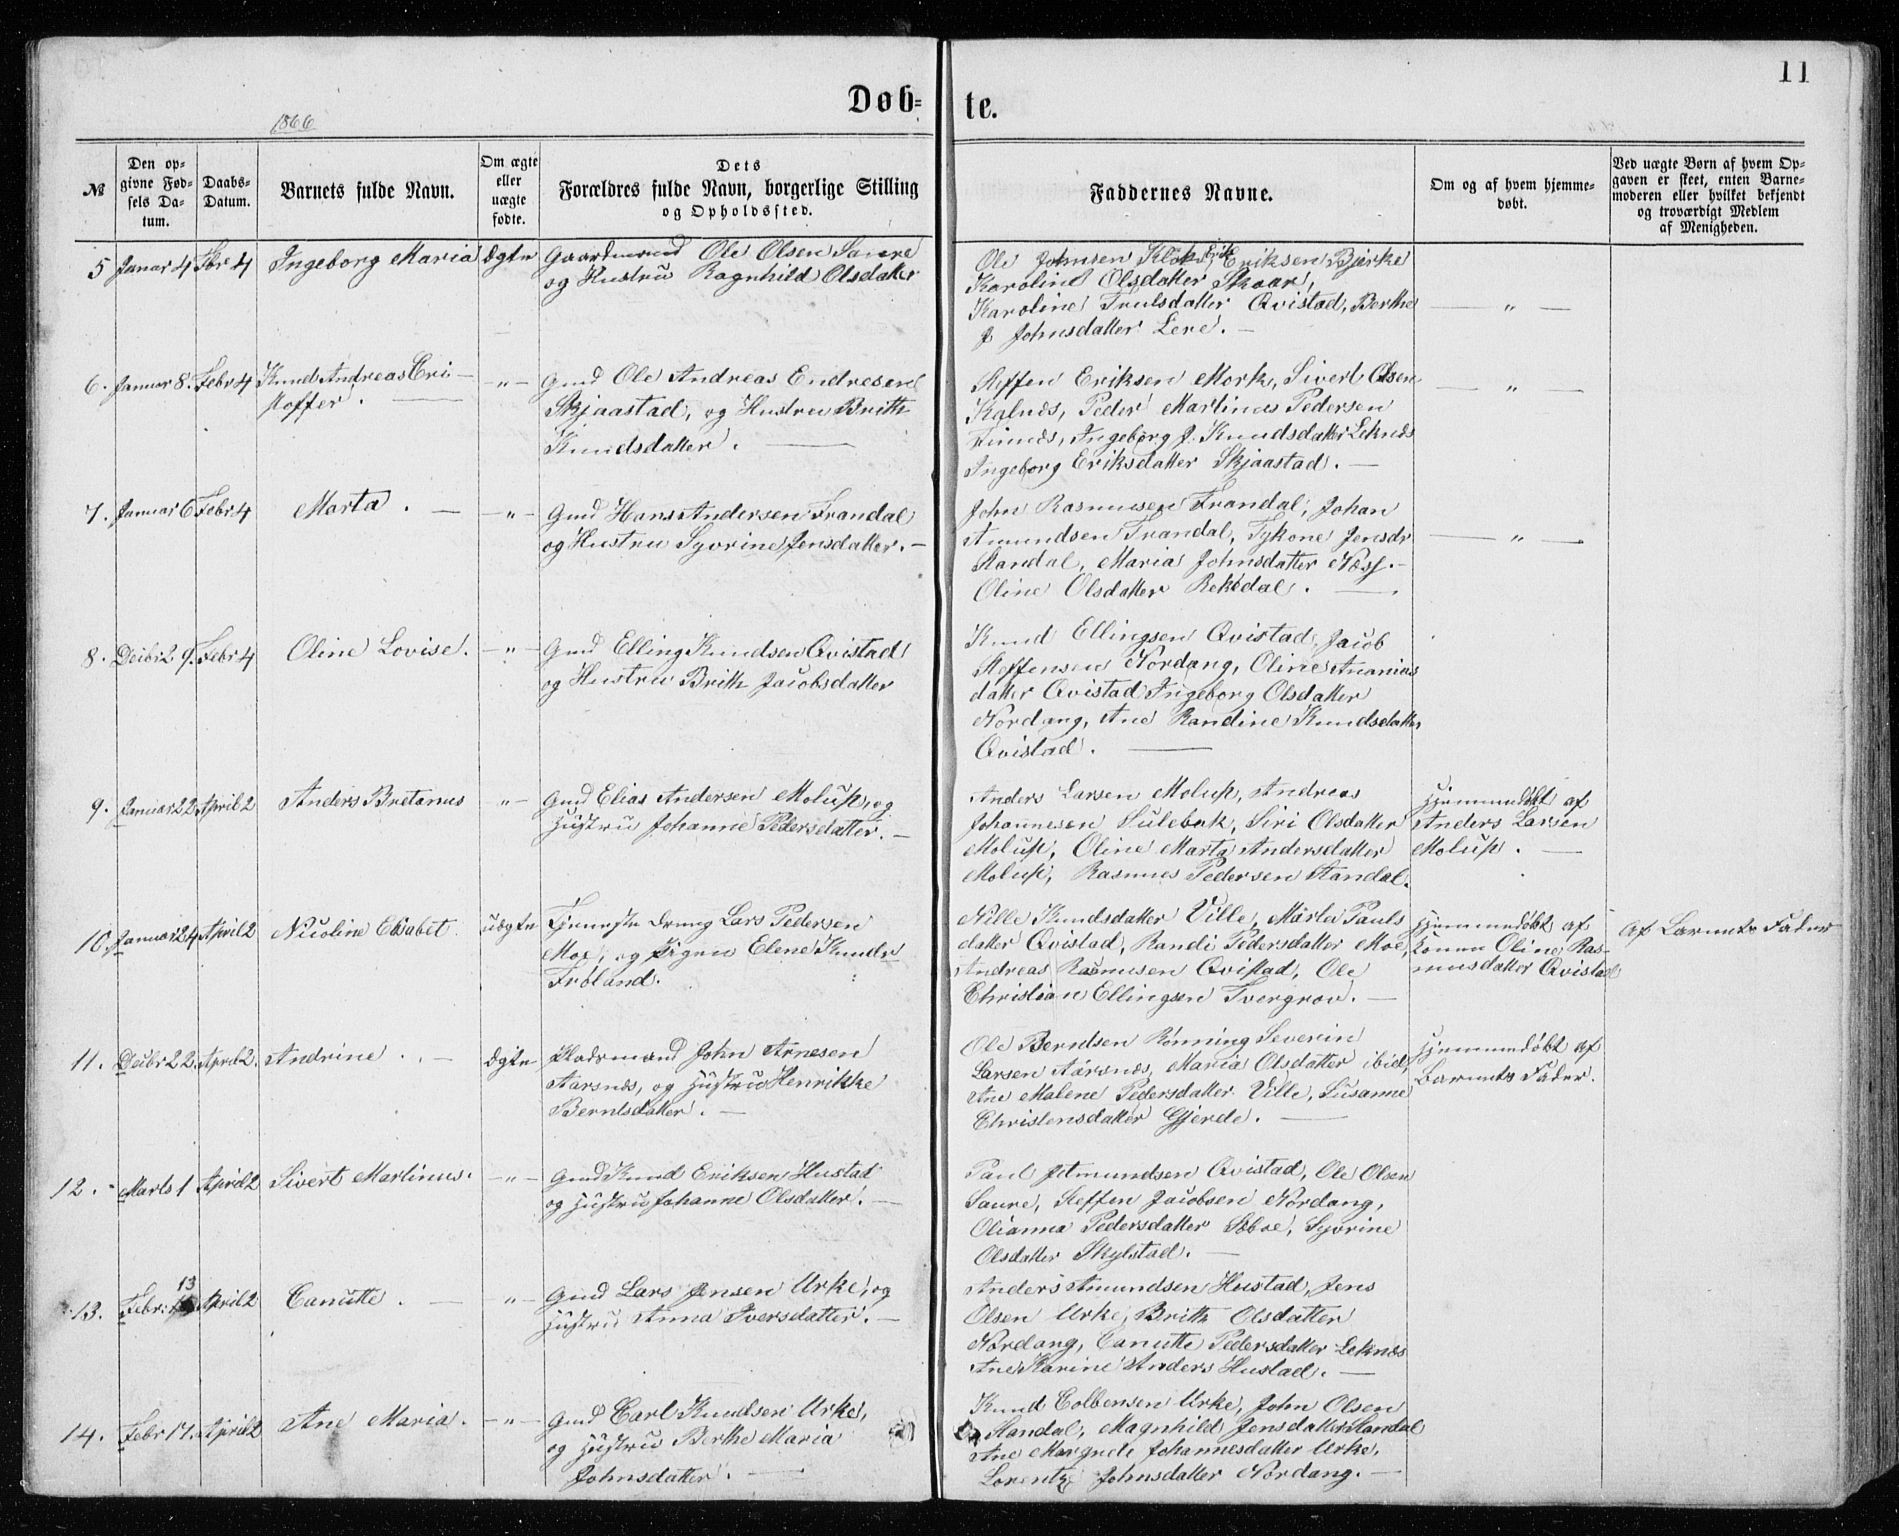 11
Døb-
te.
1866
№
Den op-
givne Fød-
sels Da-
tum.
Daabs-
Datum.
Barnets fulde Navn.
Om ægte
eller
uægte
fødte.
Dets
Forældres fulde Navn, borgerlige Stilling
og Opholdssted.
Faddernes Navne.
Om og af hvem hjemme-
døbt.
Ved uægte Børn af hvem Op-
gaven er skeet, enten Barne-
moderen eller hvilket bekjendt
og troværdigt Medlem
af Menigheden.
5 Januar 4 Fbr 4 Ingeborg Maria Ægte Gaardmand Ole Olsen Saure
og Hustru Ragnhild Olsdatter
Ole Johnsen Klok, Erik Eriksen Bjerke
Karoline Olsdatter Skaar,
Karoline Trulsdatter Qvistad, Berthe
J Johnsdatter Lere. —
— " —
6. Januar 8. Febr 4 Knud Andreas Cri-
stoffer. —
— " — Gmd Ole Andreas Endresen
Skjaastad, og Hustru Brith
Knudsdatter. —
Steffen Eriksen Mork, Sivert Olsen
Kalnes, Peder Martinus Pedersen
Finnes, Ingeborg J. Knudsdatter Leknes
Ingeborg Eriksdatter Skjaastad. —
— " —
7. Januar 6 Febr 4 Marta. — — " — Gmd Hans Andersen Trandal
og Hustru Syvrine Jensdatter. —
John Rasmusen Trandal, Johan
Amundsen Trandal, Tykone Jensdr
Standal, Maria Johnsdatter Næss. —
Oline Olsdatter Rekkedal. —
— " —
8. Deibr 29. Febr 4 Oline Lovise. — " — Gmd Elling Knudsen Qvistad
og Hustru Brith Jacobsdatter
Knud Ellingsen Qvistad, Jacob
Steffensen Nordang, Oline Ananias
datter Qvistad Ingeborg Olsdatter
Nordang, Ane Randine Knudsdatter
Qvistad. —
9. Januar 22 April 2 Anders Bretanus — " — Gmd Elias Andersen Molup, og
Hustru Johanne Pedersdatter. —
Anders Larsen Molup, Andreas
Johannesen Sulebak, Siri Olsdatter
Molup, Oline Marta Andersdatter
Molup, Rasmus Pedersen Standal.
Hjemmedøbt af
Anders Larsen
Molup. —
10. Januar 24 April 2 Nicoline Elisabet. uægte Tjeneste Dreng Lars Pedersen
Moe, og Pigen Elene Knuds
Frøland.
Nille Knudsdatter Ville, Marta Pauls
datter Qvistad, Randi Pedersdatter Moe,
Andreas Rasmusen Qvistad, Ole
Christian Ellingsen Tvergrov. —
Hjemmedøbt af
Konen Oline Ras-
musdatter Qvistad
Af Barnets Fader
11. Deibr 22. April 2. Andrine. — Ægte Pladsmand John Arnesen
Aarsnes, og Hustru Henrikke
Berntsdatter. —
Ole Berndsen Rønning Severin
Larsen Aarsnes, Maria Olsdatter ibid,
Ane Malene Pedersdatter Ville, Susanne
Christensdatter Gjerde. —
Hjemmedøbt af
Barnets Fader.
12. Marts 1 April 2 Sivert Martinus. — " — Gmd Knud Eriksen Hustad
og Hustru Johanne Olsdatter. —
Paul Jetmundsen Qvistad, Ole Olsen
Saure, Steffen Jacobsen Nordang,
Olianna Pedersdatter Søboe, Syvrine
Olsdatter Skylstad. —
13
13. Febr: April 2 Canutte. — — " — Gmd Lars Jensen Urke, og
Hustru Anna Iversdatter. —
Anders Amundsen Hustad, Jens
Olsen Urke, Brith Olsdatter
Nordang, Canutte Pedersdatter Leknes
Ane Karine Anders Hustad. —
14. Febr 17. April 2 Ane Maria. — " — Gmd Carl Knudsen Urke,
og Hustru Berthe Maria
Johnsdatter. —
Knud Colbensen Urke, John Olsen
Standal, Magnhild Jensdatter Standal
Ane Margrete Johannesdatter Urke,
Lorentze Johnsdatter Nordang. —